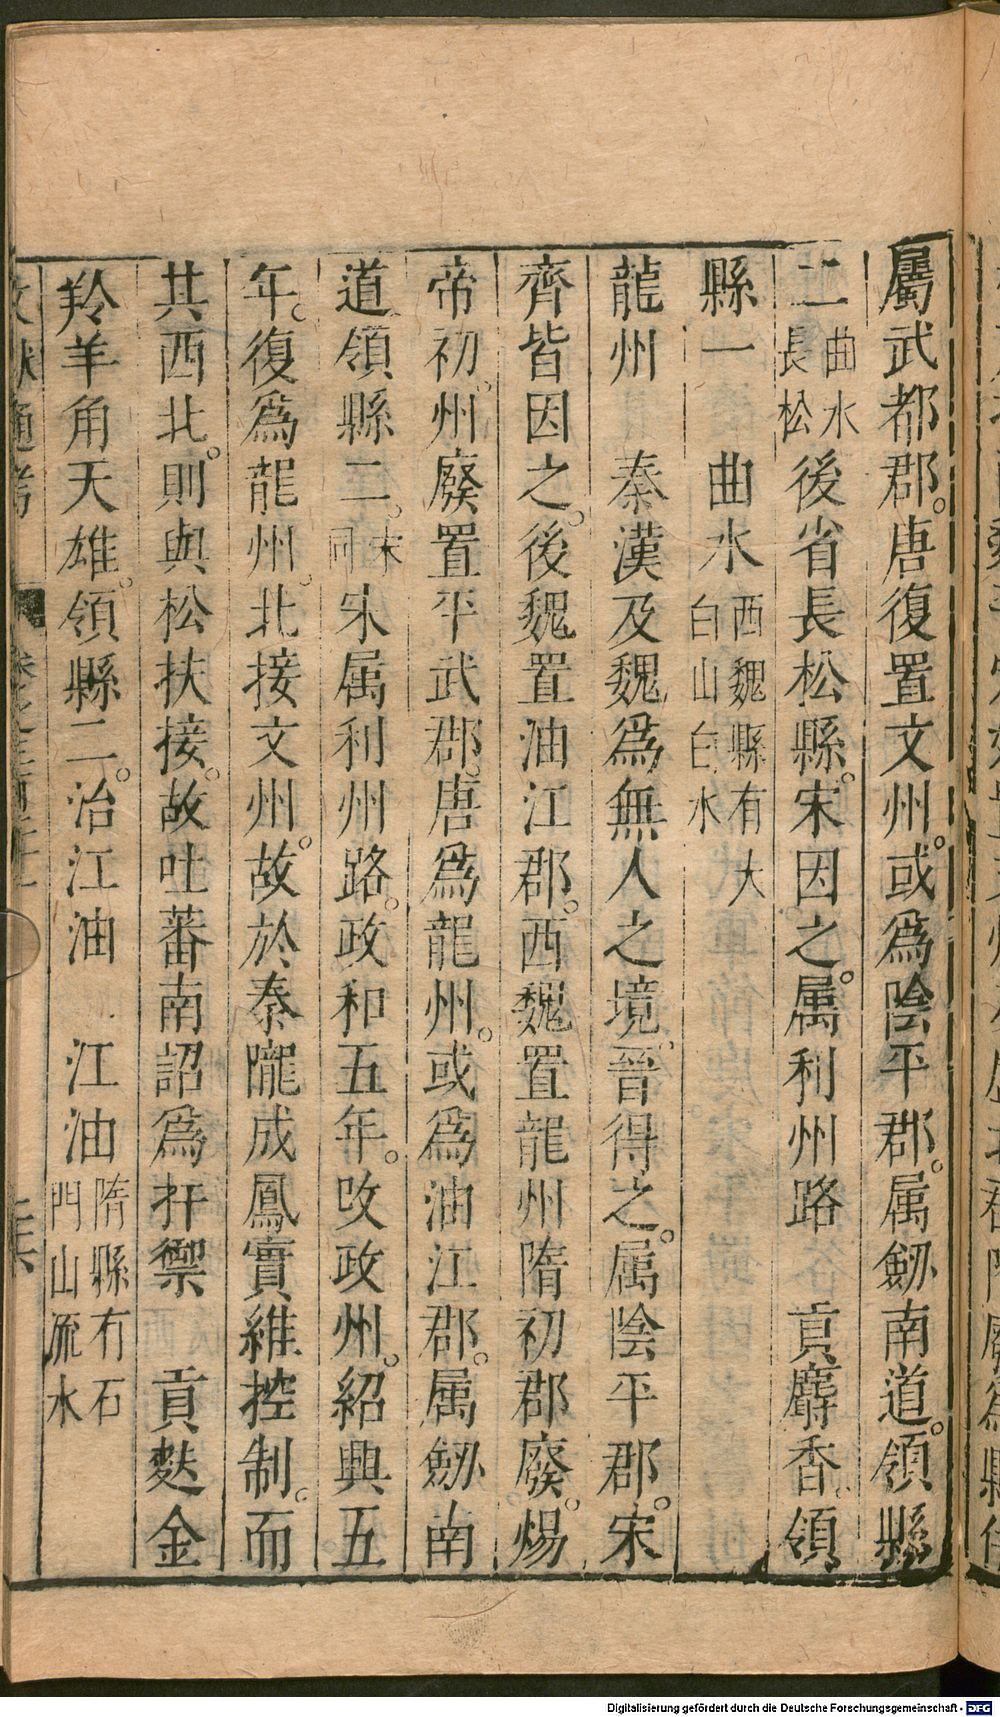 屬武都郡。唐復置文州。或爲陰平郡。属劒南道。領縣
二曲水長松後省長松縣。宋因之。属利州路 貢麝香。領
縣一 曲水西魏縣有大白山白水
龍州 秦漢及魏爲無人之境、晉得之。属陰平郡。宋
齊皆因之。後魏置油江郡。西魏置龍州隋初郡廢。煬
帝初。州廢置平武郡。唐爲龍州。或爲油江郡。属劒南
道。領縣二。宋同宋属利州路。政和五年。改政州。紹興五
年。復爲龍州。北接文州。故於秦隴成鳳實維控制。而
其西北。則與松扶接。故吐蕃南詔爲扞禦 貢麩金
羚羊角天雄。領縣二。治江油 江油隋縣有石門山流水
文獻通考
Digitalisierung gefördert durch die Deutsche Forschungsgemeinschaft - DFG